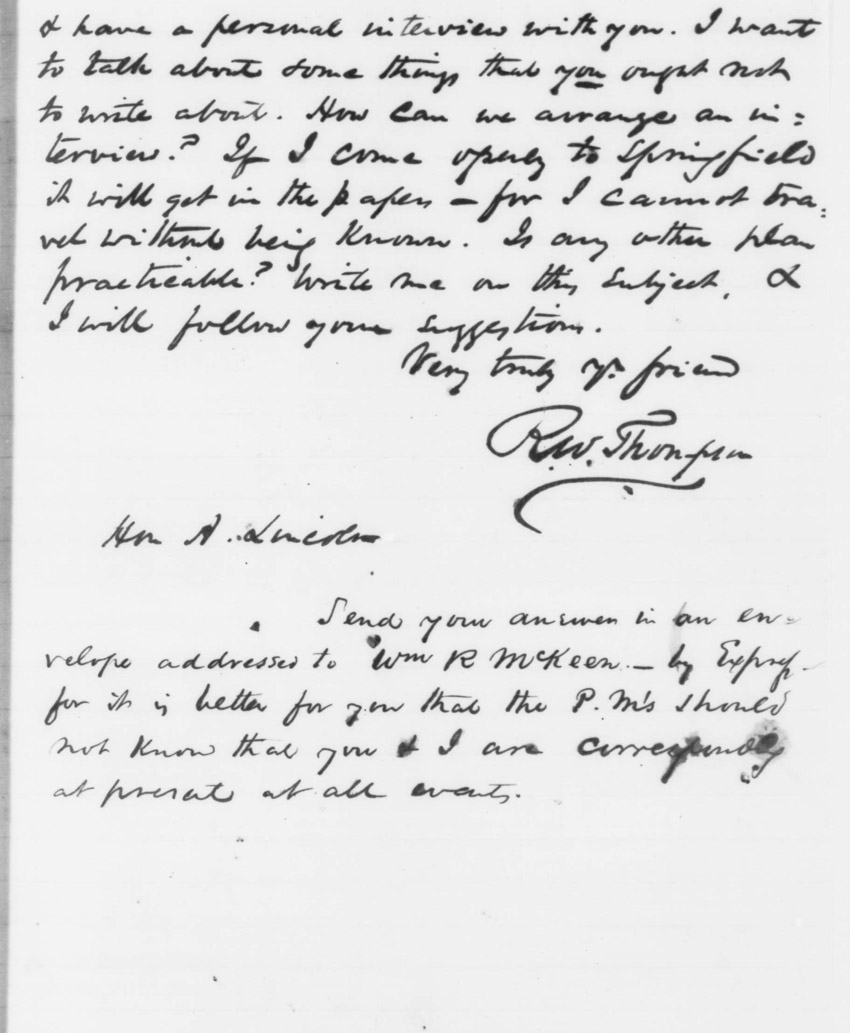 & have a personal interview with you. I want
to talk about some things that you ought not
to write about. How can we arrange an in=
terview? If I come openly to Springfield
it will get in the papers — for I cannot tra=
vel without being Known. Is any other plan
practicable? Write me on this subject, &
I will follow your suggestions.
Very truly yr friend
R.W. Thompson
Hon A. Lincoln
Send your answer in an en=
velope addressed to Wm R McKeen — by Express
for it is better for you that the P. M's should
not Know that you & I are corresponding
at present at all events.